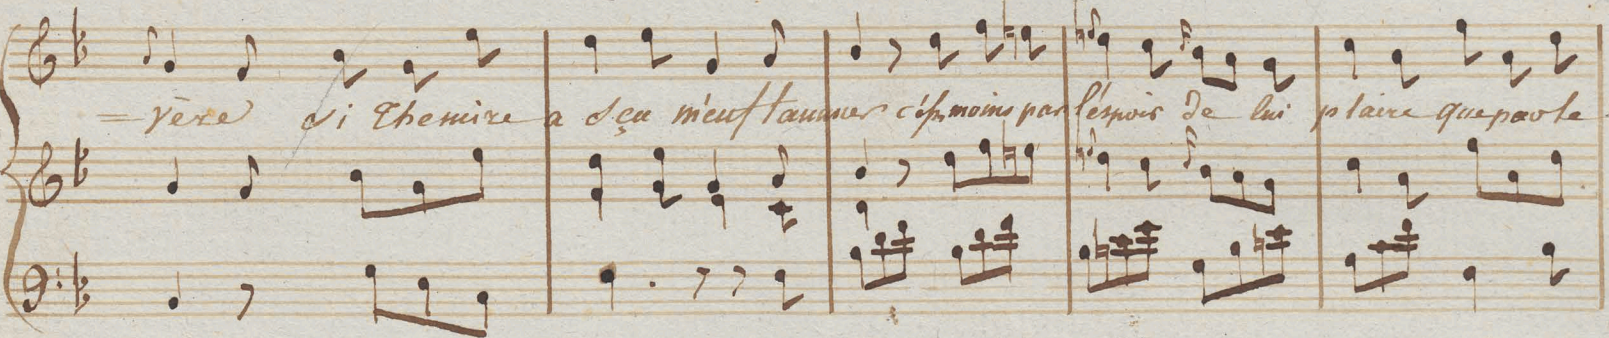 = vère si Themire a sçu m'enflammer c'est moins par l'espoir de lui plaire que par le